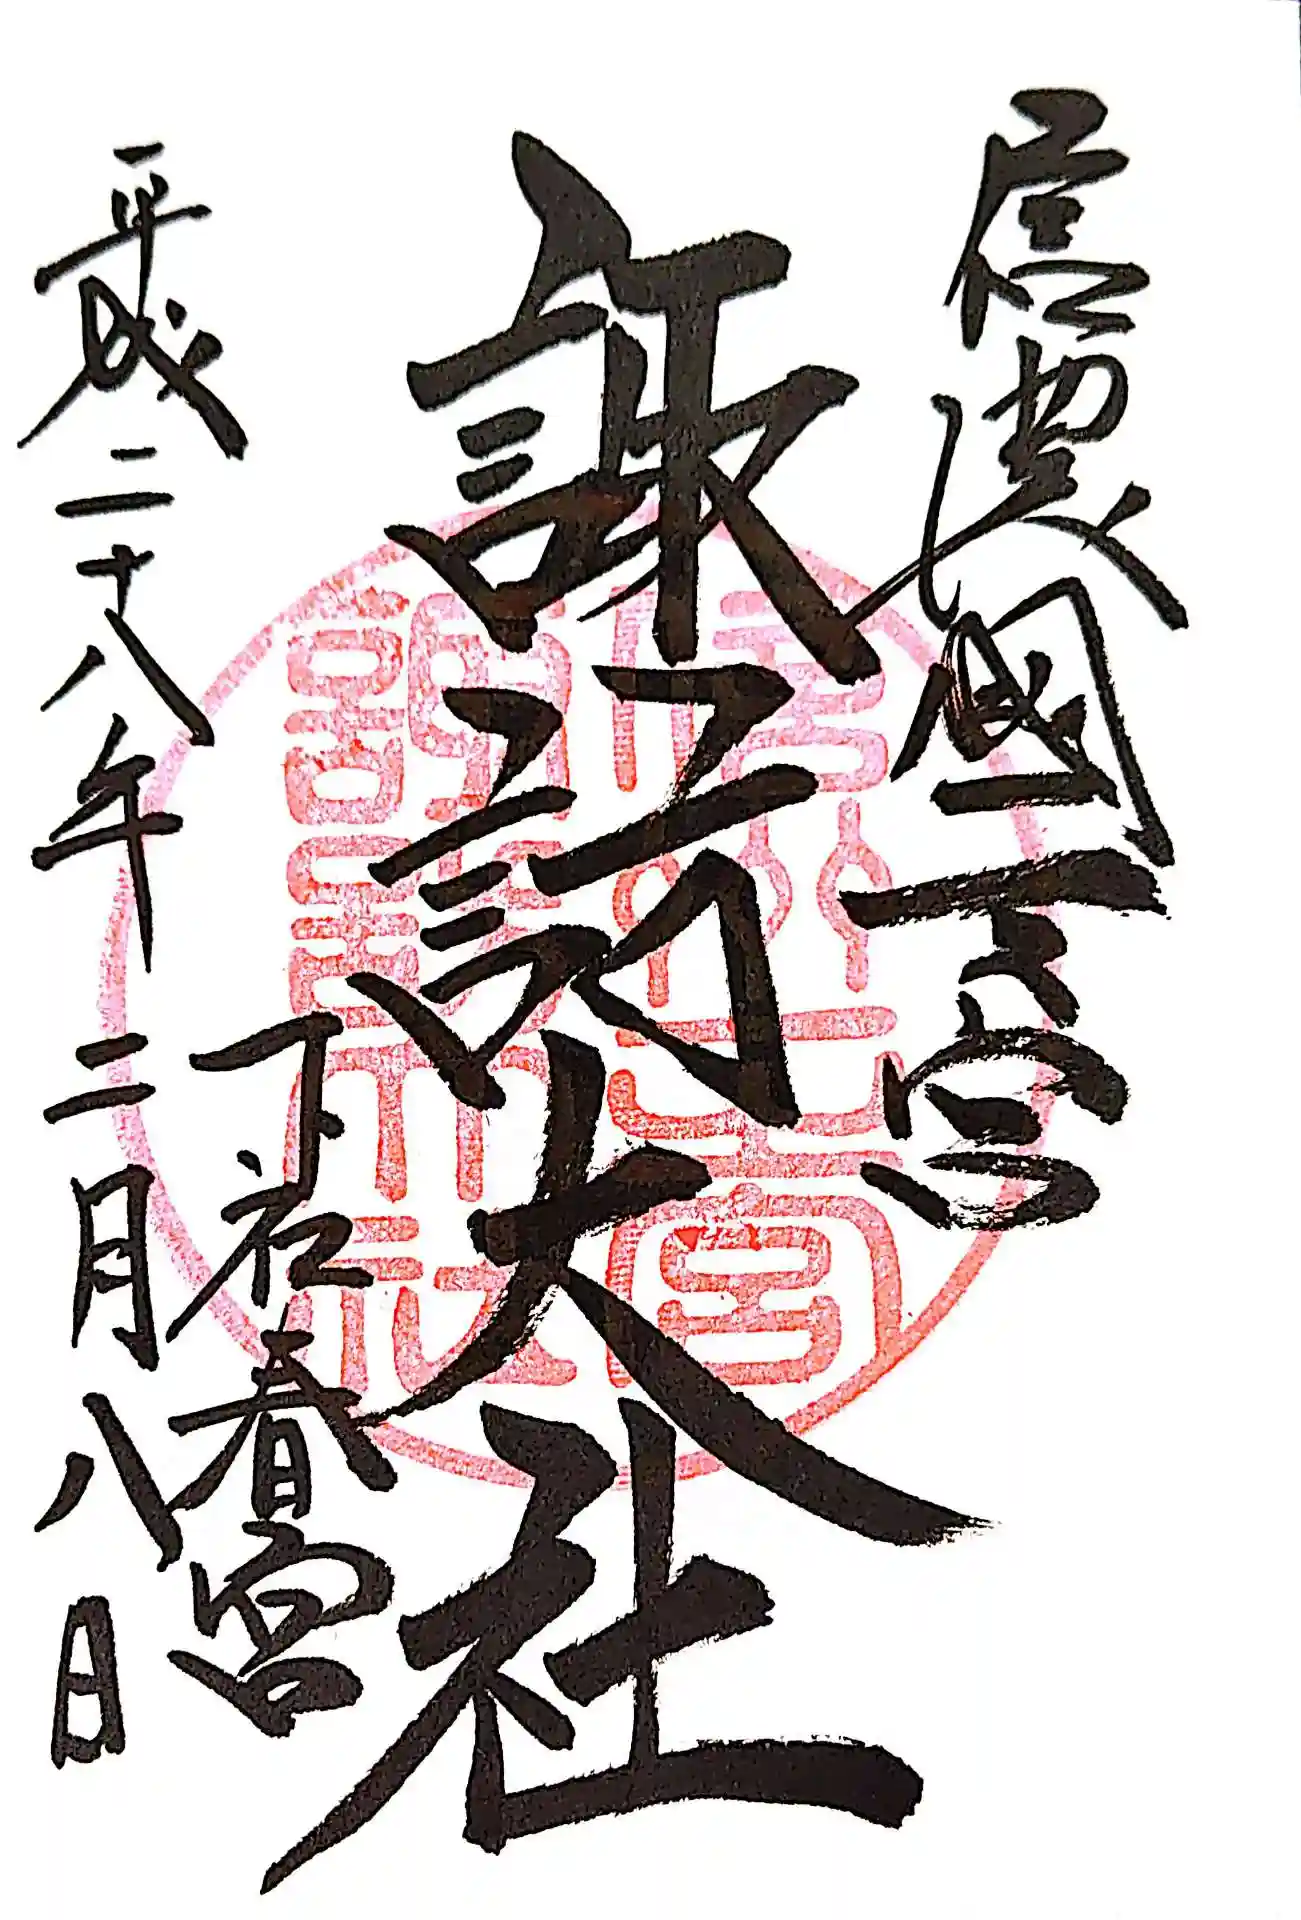 信濃國一之宮
諏訪大社
下社春宮
平成二十八年二月八日
信州一之宮
諏訪大社